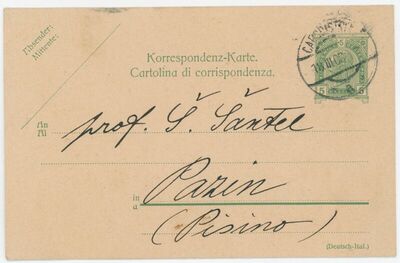 Absender:
Mittente:
Korrespondenz-Karte.
Cartolina di corrispondenza.
5 5
An
Al
prof. Š. Šantel
in
a
Pazin
(Pisino)
(Deutsch-Ital.)